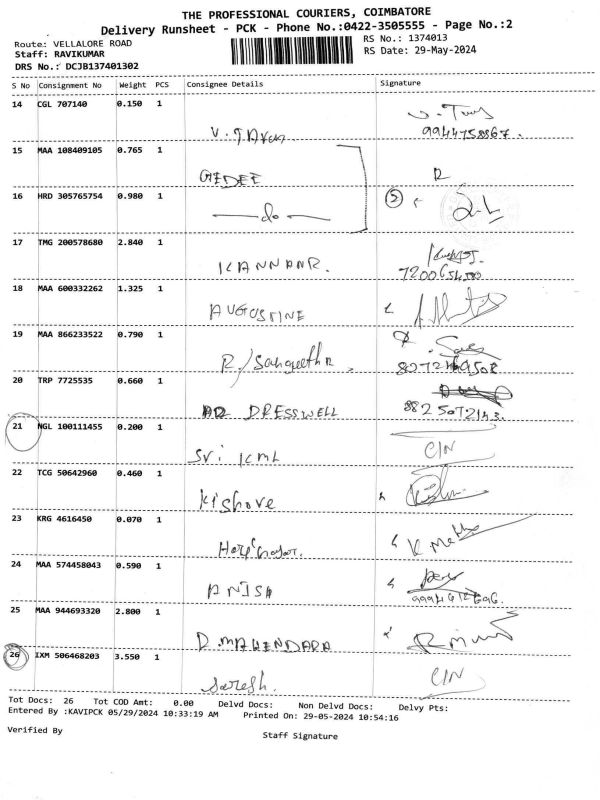 THE PROFESSIONAL COURIERS, COIMBATORE
Delivery Runsheet - PCK - Phone No.:0422-3505555 - Page No.:2
Route: VELLALORE ROAD RS No.: 1374013
Staff: RAVIKUMAR RS Date: 29-May-2024
DRS No.: DCJB137401302
S No Consignment No Weight PCS Consignee Details Signature
14 CGL 707140 0.150 1
9944758867.
15 MAA 108409105 0.765 1
GEDEE R
16 HRD 305765754 0.980 1
do 5
17 TMG 200578680 2.840 1
KANNAN R.
18 MAA 600332262 1.325 1
AUGUSTINE
19 MAA 866233522 0.790 1
R/Sangeetha
20 TRP 7725535 0.660 1
DRESSWELL
21 NGL 100111455 0.200 1
Sri KML C/N
22 TCG 50642960 0.460 1
Kishore
23 KRG 4616450 0.070 1
24 MAA 574458043 0.590 1
ANISH
25 MAA 944693320 2.800 1
D.MAHENDARA
26 IXM 506468203 3.550 1
Suresh. C/N
Tot Docs: 26 Tot COD Amt: 0.00 Delvd Docs: Non Delvd Docs: Delvy Pts:
Entered By :KAVIPCK 05/29/2024 10:33:19 AM Printed On: 29-05-2024 10:54:16
Verified By
Staff Signature